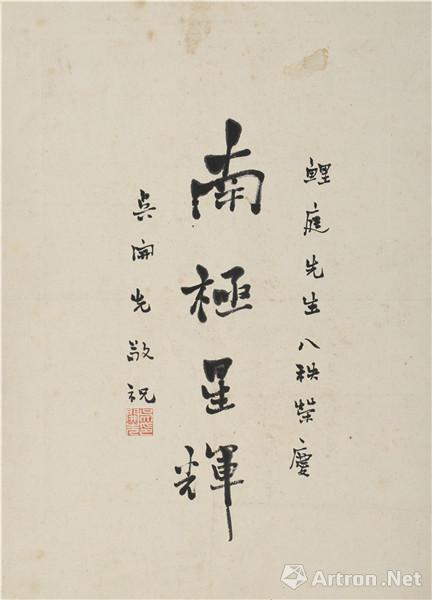 鯉庭先生八秩榮慶
南極星輝
吳開先敬祝
Artron.Net